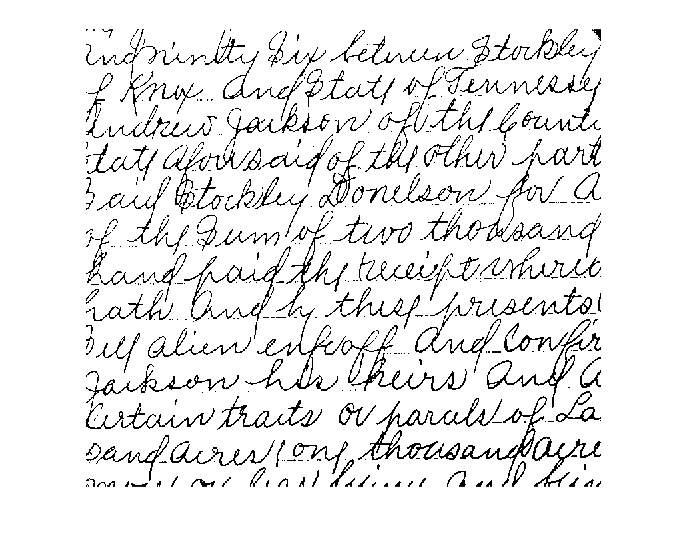 and ninety Six between Stockley
of Knox And State of Tennessey
Andrew Jackson of the Count
State aforesaid of the other part
Said Stockley Donelson for A
of the Sum of two thousand
hand paid the receipt where
hath And by these presents
Sell alien enfeoff And Confir
Jackson his heirs And A
Certain tracts or parcels of La
sand Acres one thousand Acre
more or less lying And bein